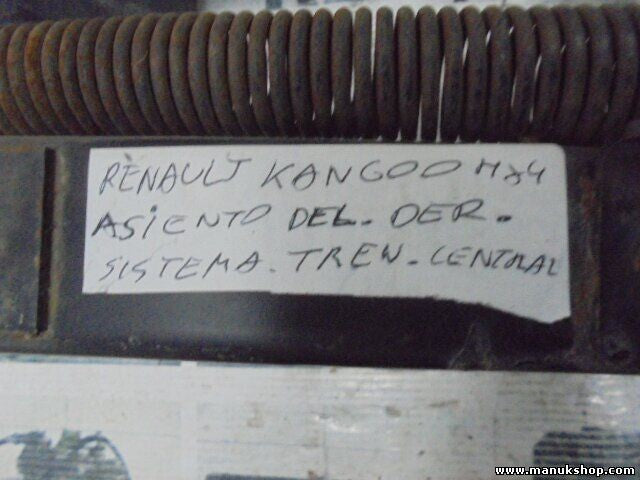 RENAULT KANGOO
ASIENTO DEL. DER.
SISTEMA. TREW. CENTRAL
www.manukshop.com